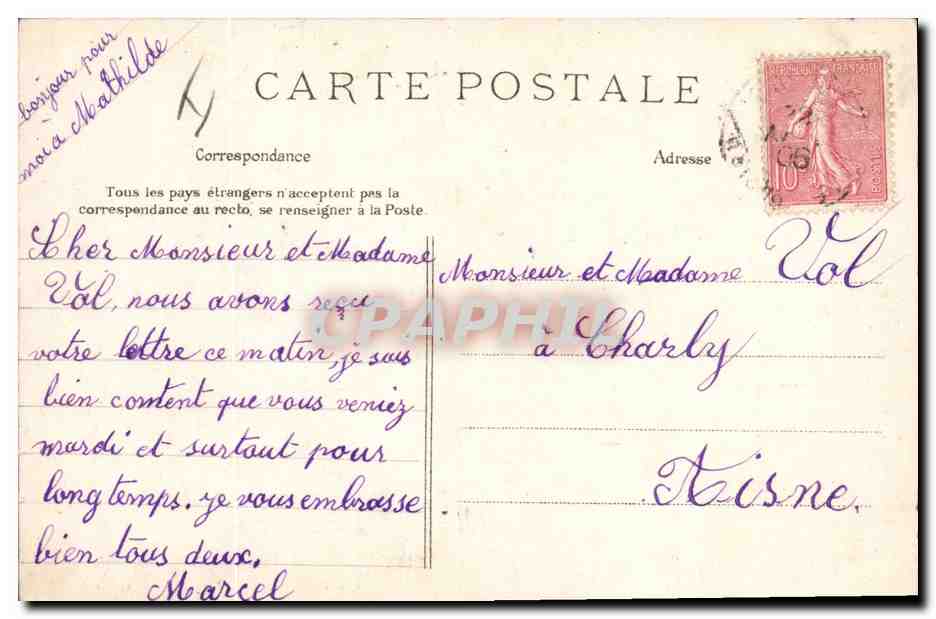 bonjour pour
moi a Mathilde
CARTE POSTALE
Correspondance
Adresse
Tous les pays étrangers n'acceptent pas la
correspondance au recto, se renseigner à la Poste.
REPUBLIQUE FRANÇAISE
10
POSTES
06
Cher Monsieur et Madame
Val, nous avons reçu
votre lettre ce matin, je suis
bien content que vous veniez
mardi et surtout pour
longtemps. je vous embrasse
bien tous deux.
Marcel
Monsieur et Madame Val
à Charly
Aisne.
CPAPHIL